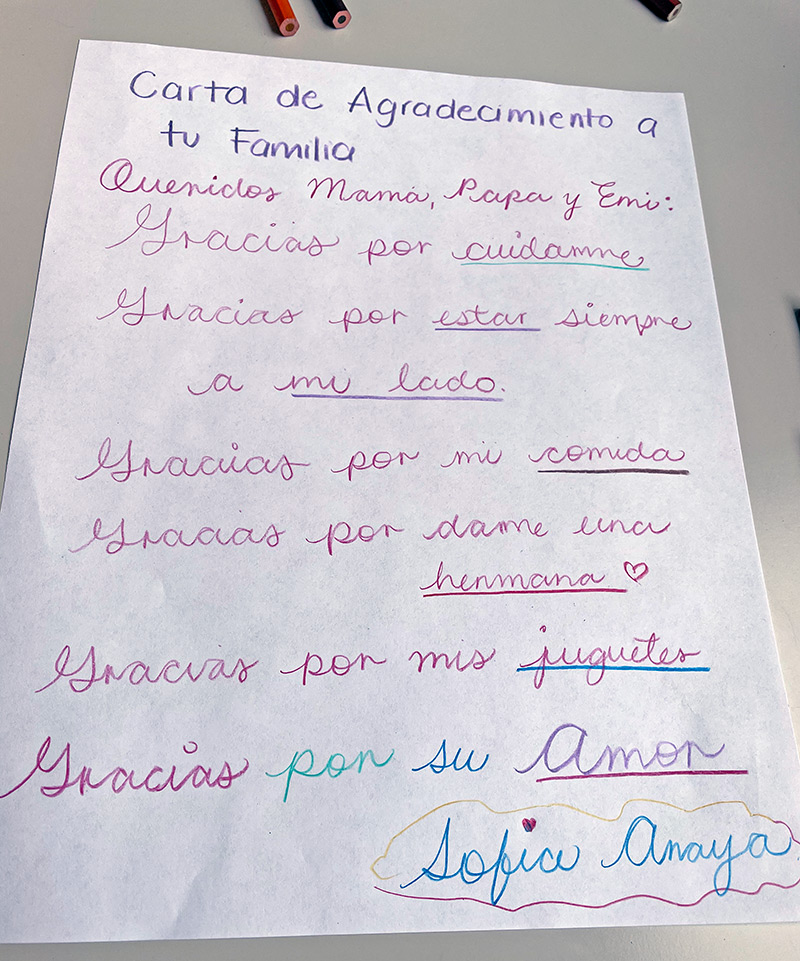 Carta de Agradecimiento a
tu Familia
Queridos Mamá, Papa y Emi:
Gracias por cuidarme
Gracias por estar siempre
a mi lado.
Gracias por mi comida
Gracias por darme una
hermana ♡
Gracias por mis juguetes
Gracias por su Amor
Sofia Anaya